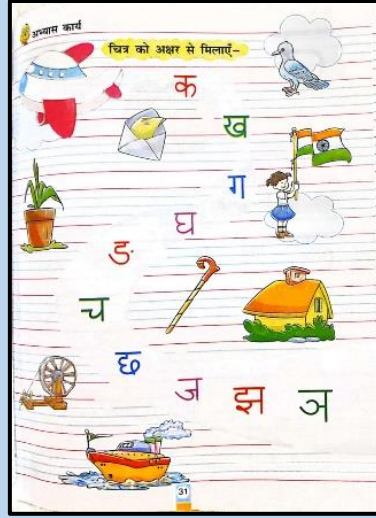 अभ्यास कार्य
चित्र को अक्षर से मिलाएँ–
क
ख
ग
घ
ङ
च
छ
ज
झ
ञ
31